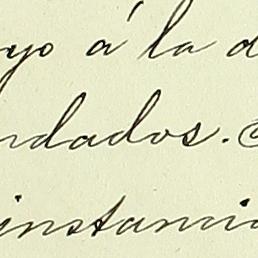 yo á la d
ndados.
instancia